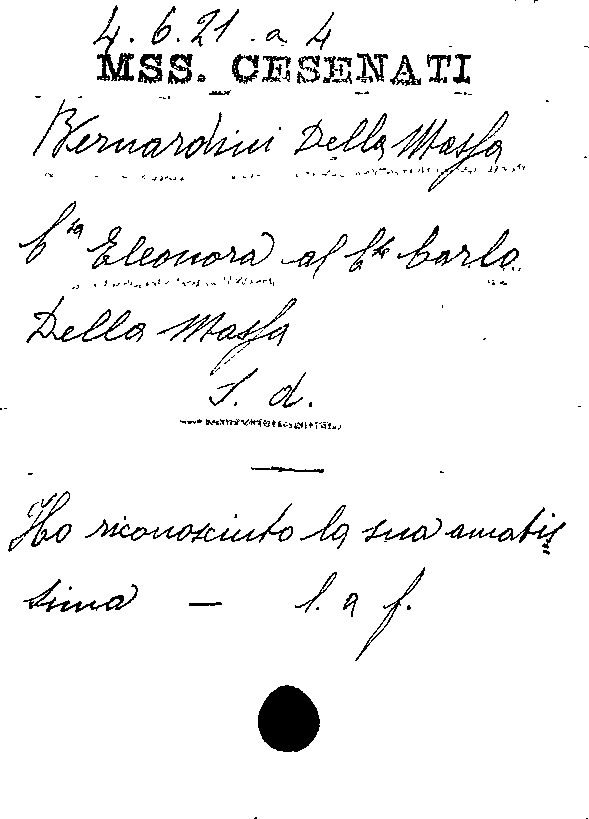 4. 6. 21 a 4
MSS. CESENATI
Bernardini Della Massa
C.sa Eleonora al C.te Carlo
Della Massa
S. d.
Ho riconosciuto la sua amatis
sima — l. a f.